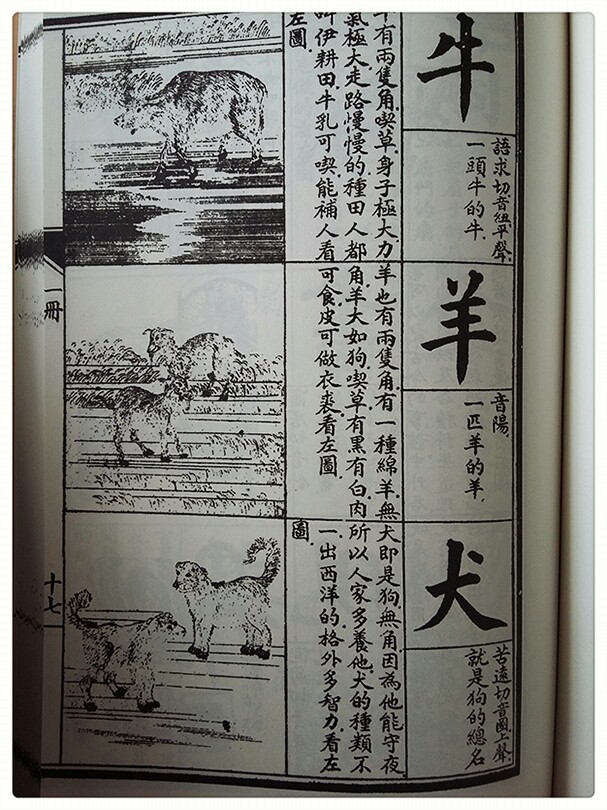 牛
語求切音紐平聲.
一頭牛的牛.
牛有兩隻角.喫草.身子極大.力
氣極大.走路慢慢的.種田人都
叫伊耕田.牛乳可喫.能補人.看
左圖.
羊
音陽.
一匹羊的羊.
羊也有兩隻角.有一種綿羊.無
角.羊大如狗.喫草.有黑有白.肉
可食.皮可做衣裘.看左圖.
犬
苦遠切音圈上聲.
就是狗的總名
犬即是狗.無角.因為他能守夜
所以人家多養他.犬的種類不
一.出西洋的格外多智力.看左
圖.
一冊
十七